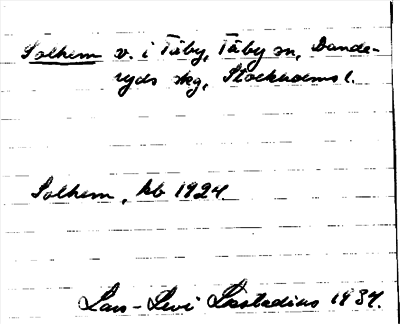 Solhem v. i Täby, Täby sn, Dande-
ryds skg, Stockholms l.
Solhem, hb 1924.
Lars-Levi Læstadius 1937.